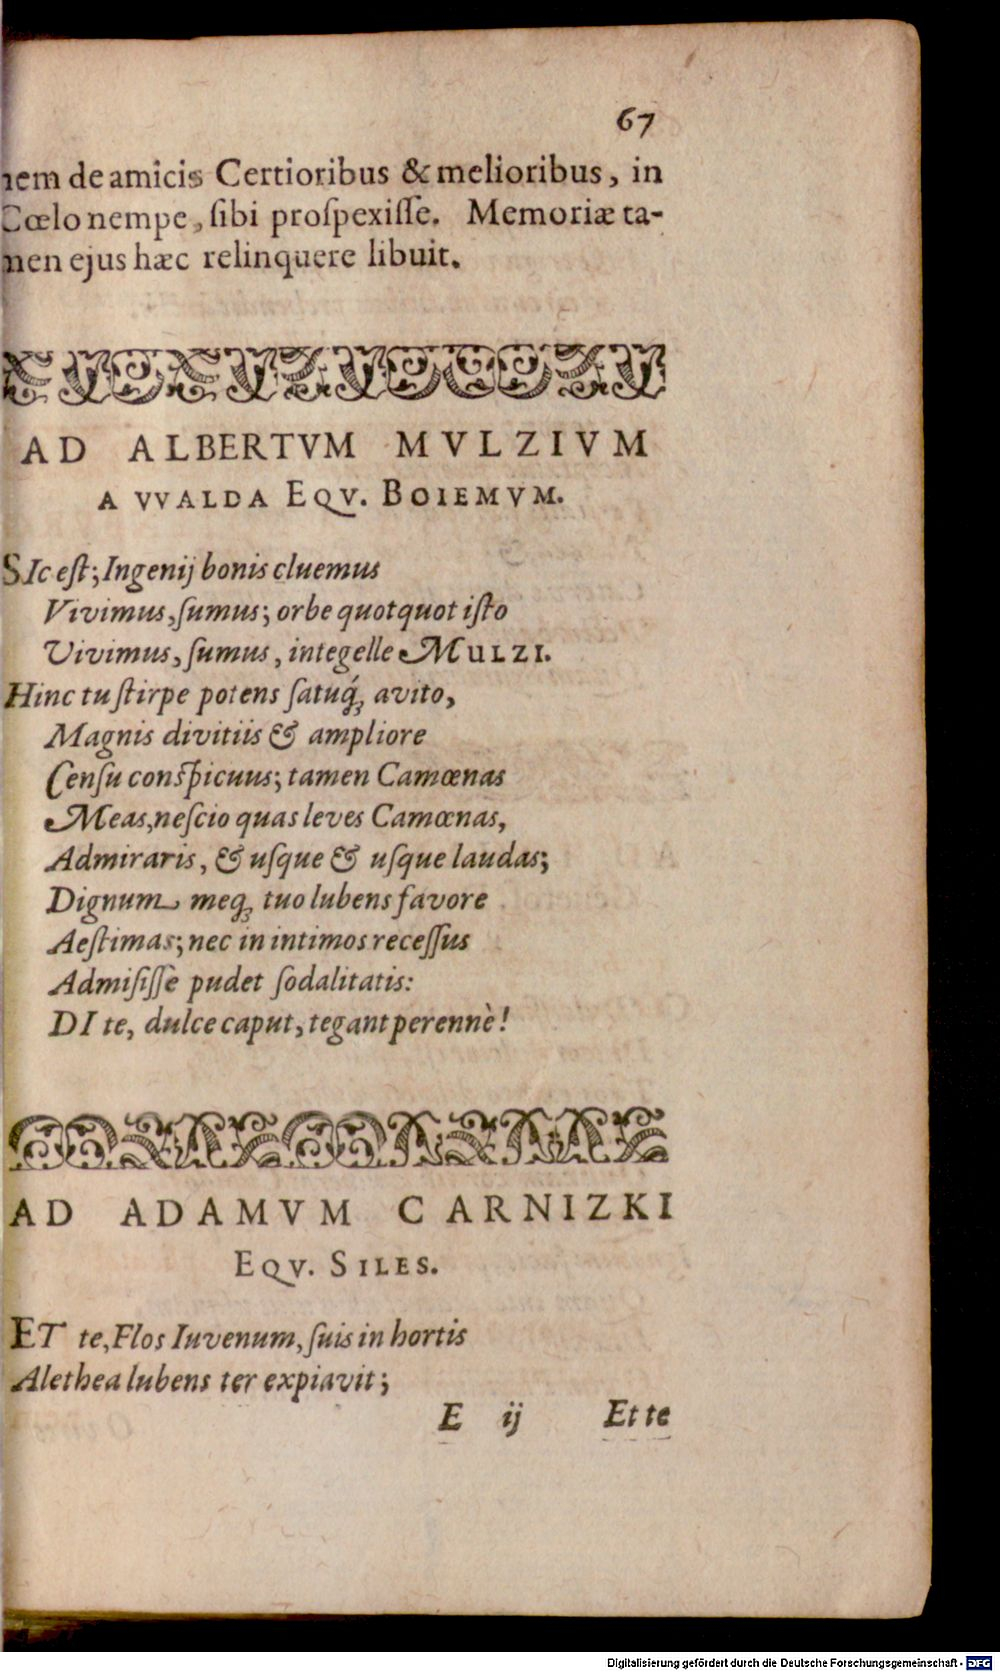 67
nem de amicis Certioribus & melioribus, in
Cœlo nempe, ſibi proſpexiſſe. Memoriæ ta-
men ejus hæc relinquere libuit.
AD ALBERTVM MVLZIVM
A VVALDA EQV. BOIEMVM.
SIc eſt; Ingenij bonis cluemus
Vivimus, ſumus; orbe quotquot iſto
Vivimus, ſumus, integelle MULZI.
Hinc tu ſtirpe potens ſatuq́ꝫ avito,
Magnis divitiis & ampliore
Cenſu conſpicuus; tamen Camœnas
Meas, neſcio quas leves Camœnas,
Admiraris, & uſque & uſque laudas;
Dignum meqꝫ tuo lubens favore
Aeſtimas; nec in intimos receſſus
Admiſiſſe pudet ſodalitatis:
DI te, dulce caput, tegant perennè!
AD ADAMVM CARNIZKI
EQV. SILES.
ET te, Flos Iuvenum, ſuis in hortis
Alethea lubens ter expiavit;
E ij Et te
Digitalisierung gefördert durch die Deutsche Forschungsgemeinschaft - DFG